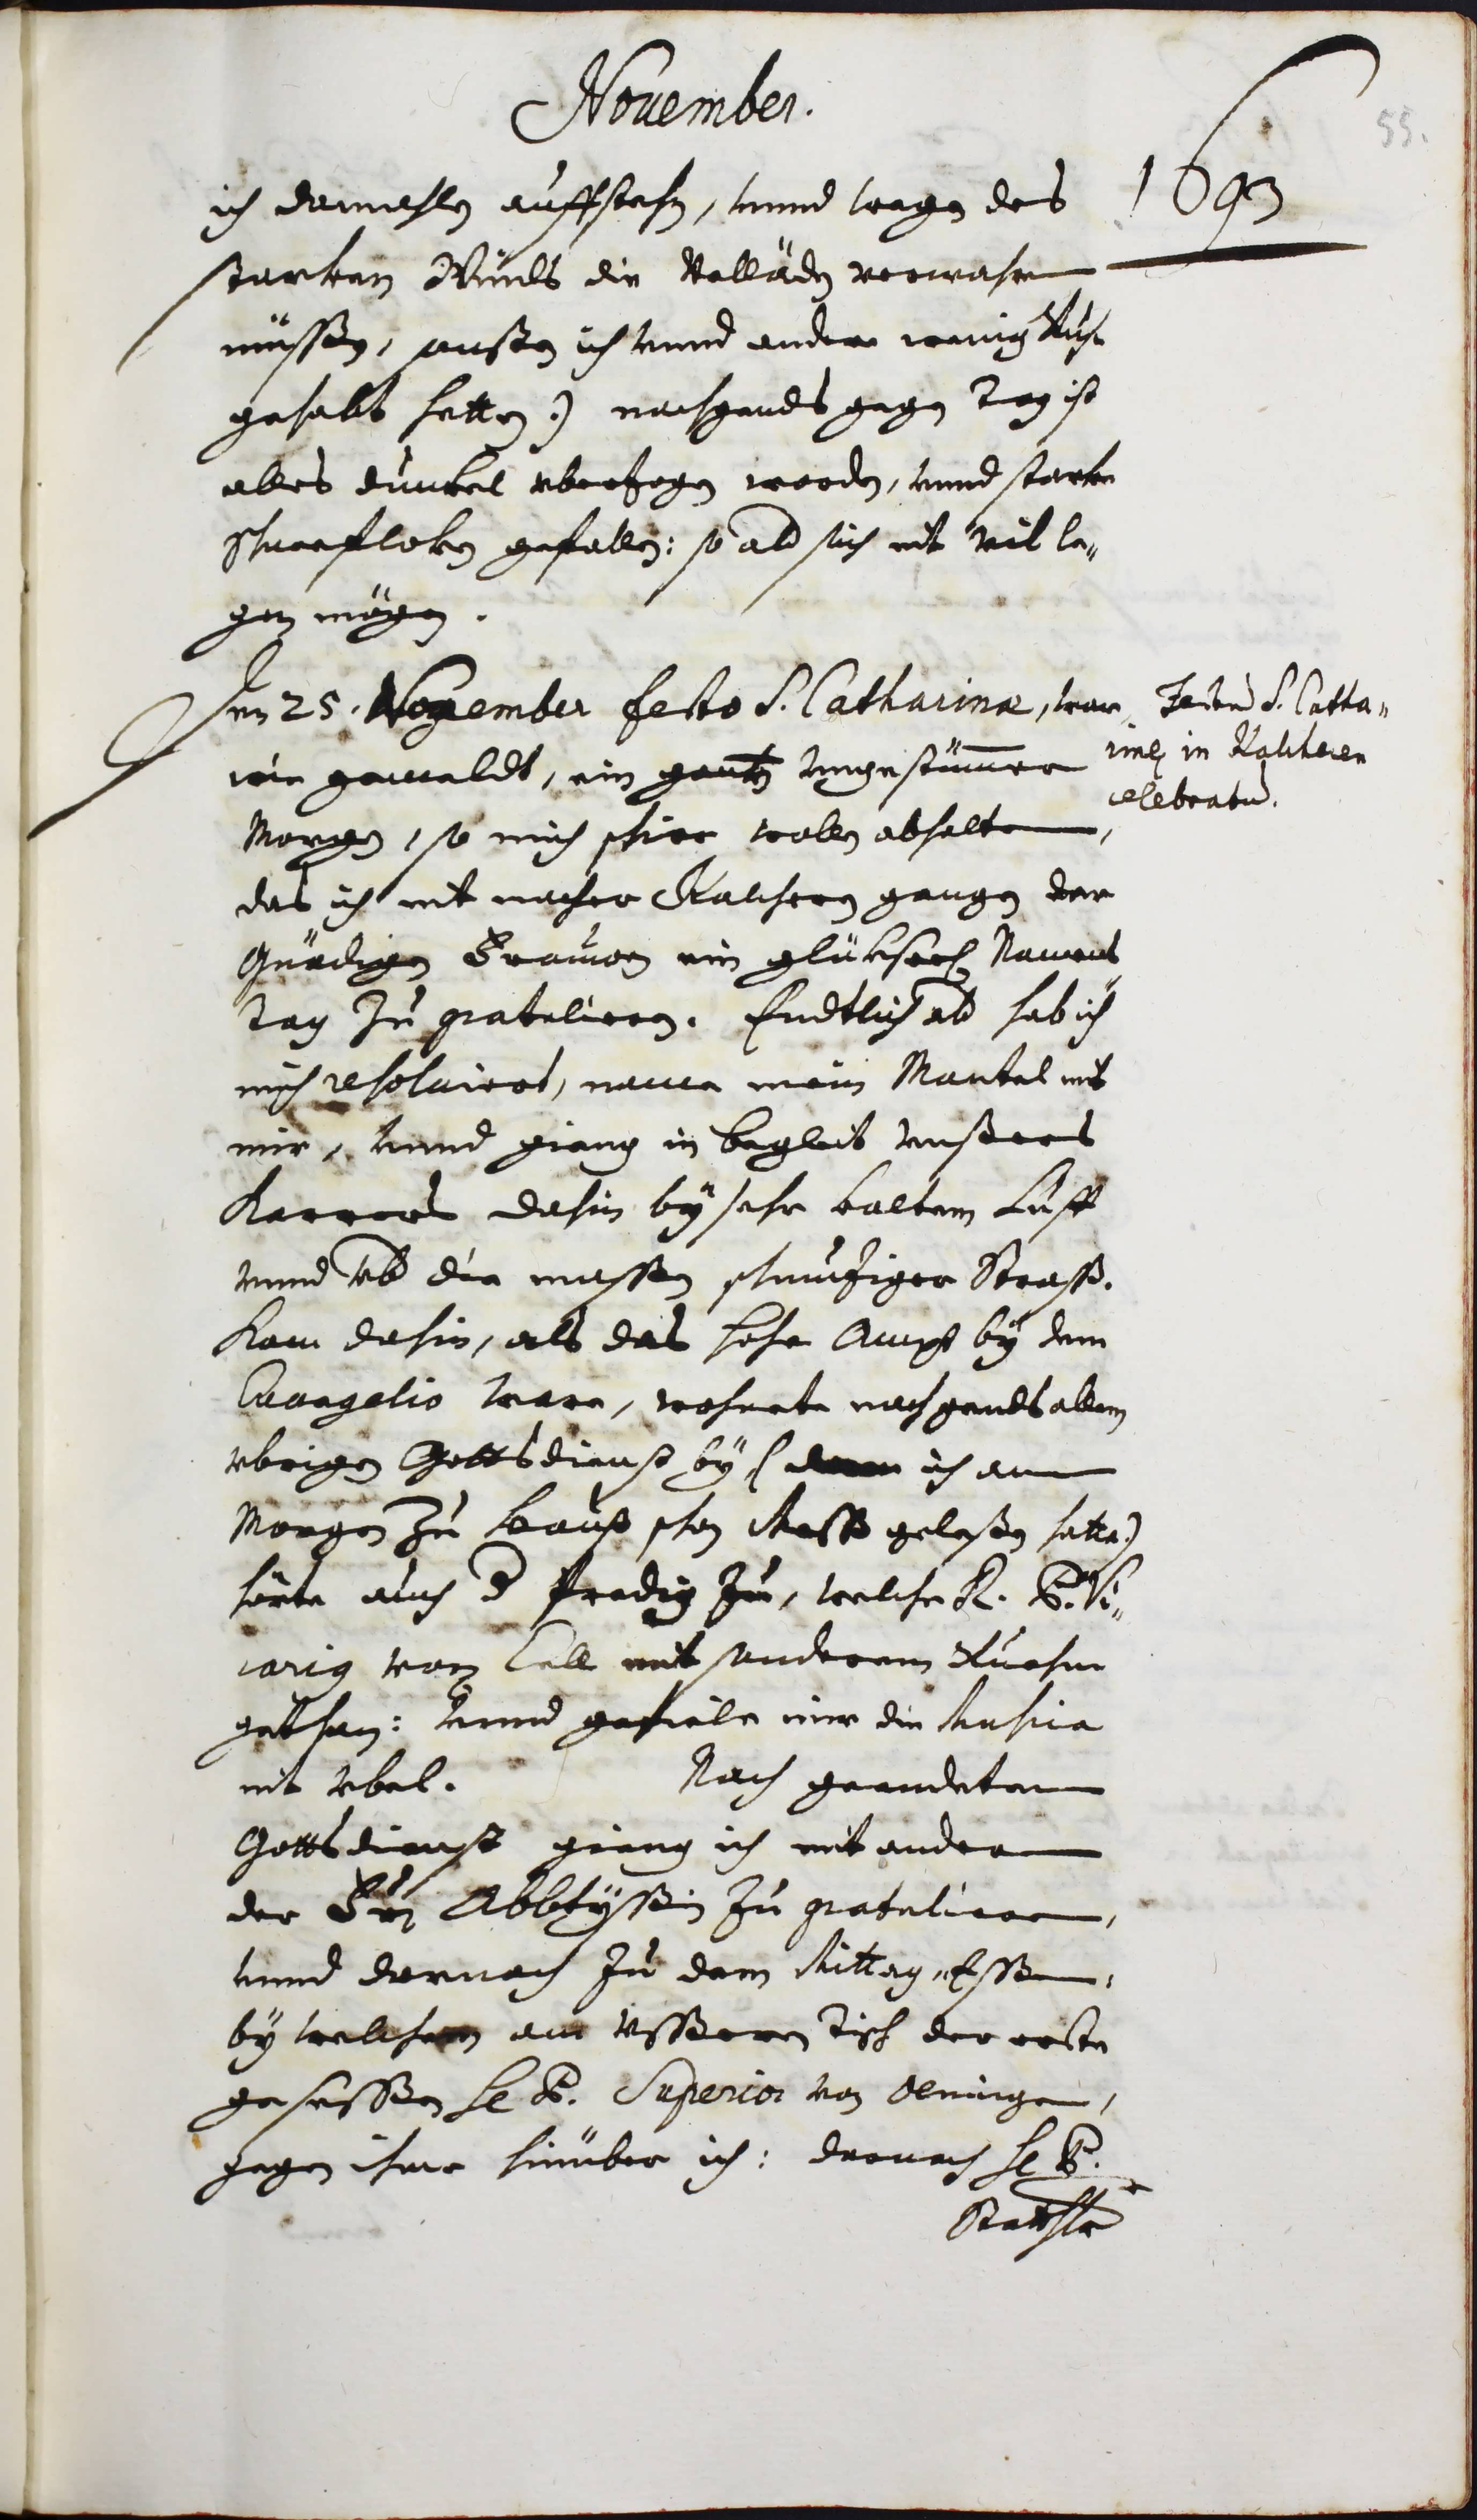 November.
1693
55.
ich dermahlen auffstehn, vnnd wegen des
starken Winds die Valläden verwahren
müssen, außen ich vnnd andere wenig Ruh
gehabt hetten.) nachgends gegen Tag ist
alles dunkel vberzogen worden, vnnd starke
Schneeflokhen gefallen: so aber sich nit vil le„
gen mögen.
Den 25. November festo S. Catharinæ, war,
wie gemeldt, ein gantz vngestümmer
Morgen, so mich schier wollen abhalten,
das ich nit nacher Kalchern gangen der
Gnädigen Frauwen ein glükseel. Namens
Tag zu gratulieren. Endtlich aber hab ich
mich resoluiert, name mein Mantel mit
mir, vnnd gieng in begleit vnßeres
Karrers dahin bÿ sehr kaltem Lufft
vnnd vber die massen schmuziger Strass.
Kam dahin, als das hohe Ampt bÿ dem
Euangelio ware, wohnete nachgends allem
vbrigen Gottsdienst bÿ (denn ich am
Morgen zu hauß schon Mess gelesen hatte)
hörte auch d Predig zu, welche R. P. Vi„
carig von Cell mit sonderem Ruehm
gethan: vnnd gefiele mir die Musica
nit vbel. Nach geendetem
Gottsdienst gieng ich mit andern
der Fr. Abbtÿssin zu gratulieren,
vnnd dernach zu dem Mittag„Essen,
bÿ welchem am vsseren Tisch der erste
gesessen H. P. Superior von Oeningen,
gegen ihme hinüber ich: dernach H. P.
Statthlr
Festum S. Catha„
rinę in Kalcheren
celebratur.